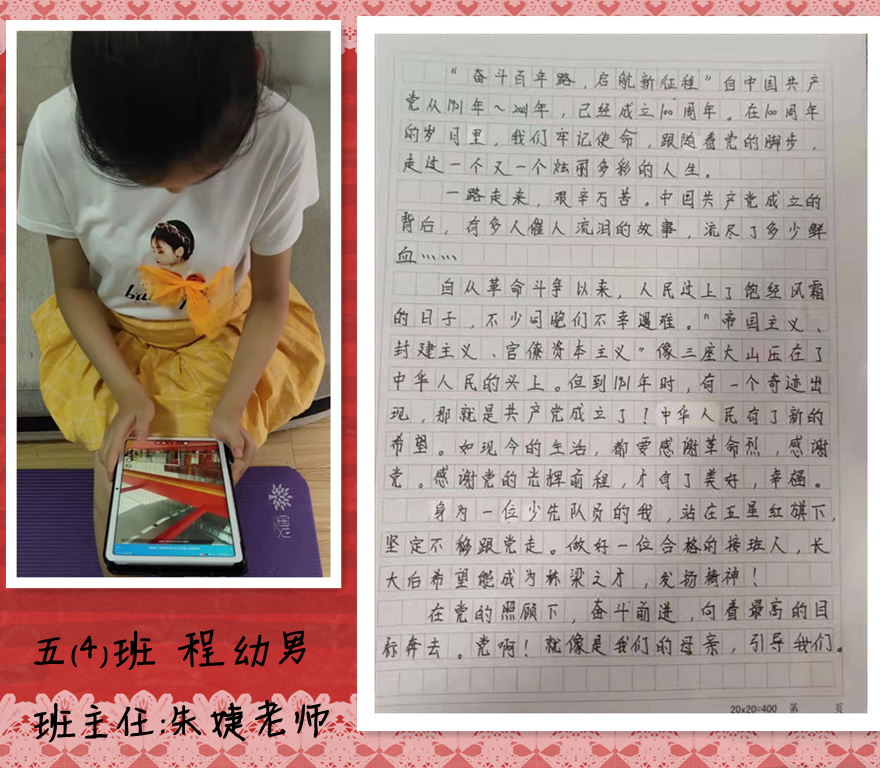 “奋斗百年路，启航新征程”自中国共产
党从1921年～2021年，已经成立100周年。在100周年
的岁月里，我们牢记使命，跟随着党的脚步，
走过一个又一个炫丽多彩的人生。
一路走来，艰辛万苦。中国共产党成立的
背后，有多人催人流泪的故事，流尽了多少鲜
血……
自从革命斗争以来，人民过上了饱经风霜
的日子，不少同胞们不幸遇难。“帝国主义、
封建主义、官僚资本主义”像三座大山压在了
中华人民的头上。但到1921年时，有一个奇迹出
现，那就是共产党成立了！中华人民有了新的
希望。如现今的生活，都要感谢革命烈，感谢
党。感谢党的光辉前程，才有了美好，幸福。
身为一位少先队员的我，站在五星红旗下，
坚定不移跟党走。做好一位合格的接班人，长
大后希望能成为栋梁之才，发扬精神！
在党的照顾下，奋斗前进，向着最高的目
标奔去。党啊！就像是我们的母亲，引导我们。
20×20=400 第 页
五(4)班 程幼男
班主任:朱婕老师